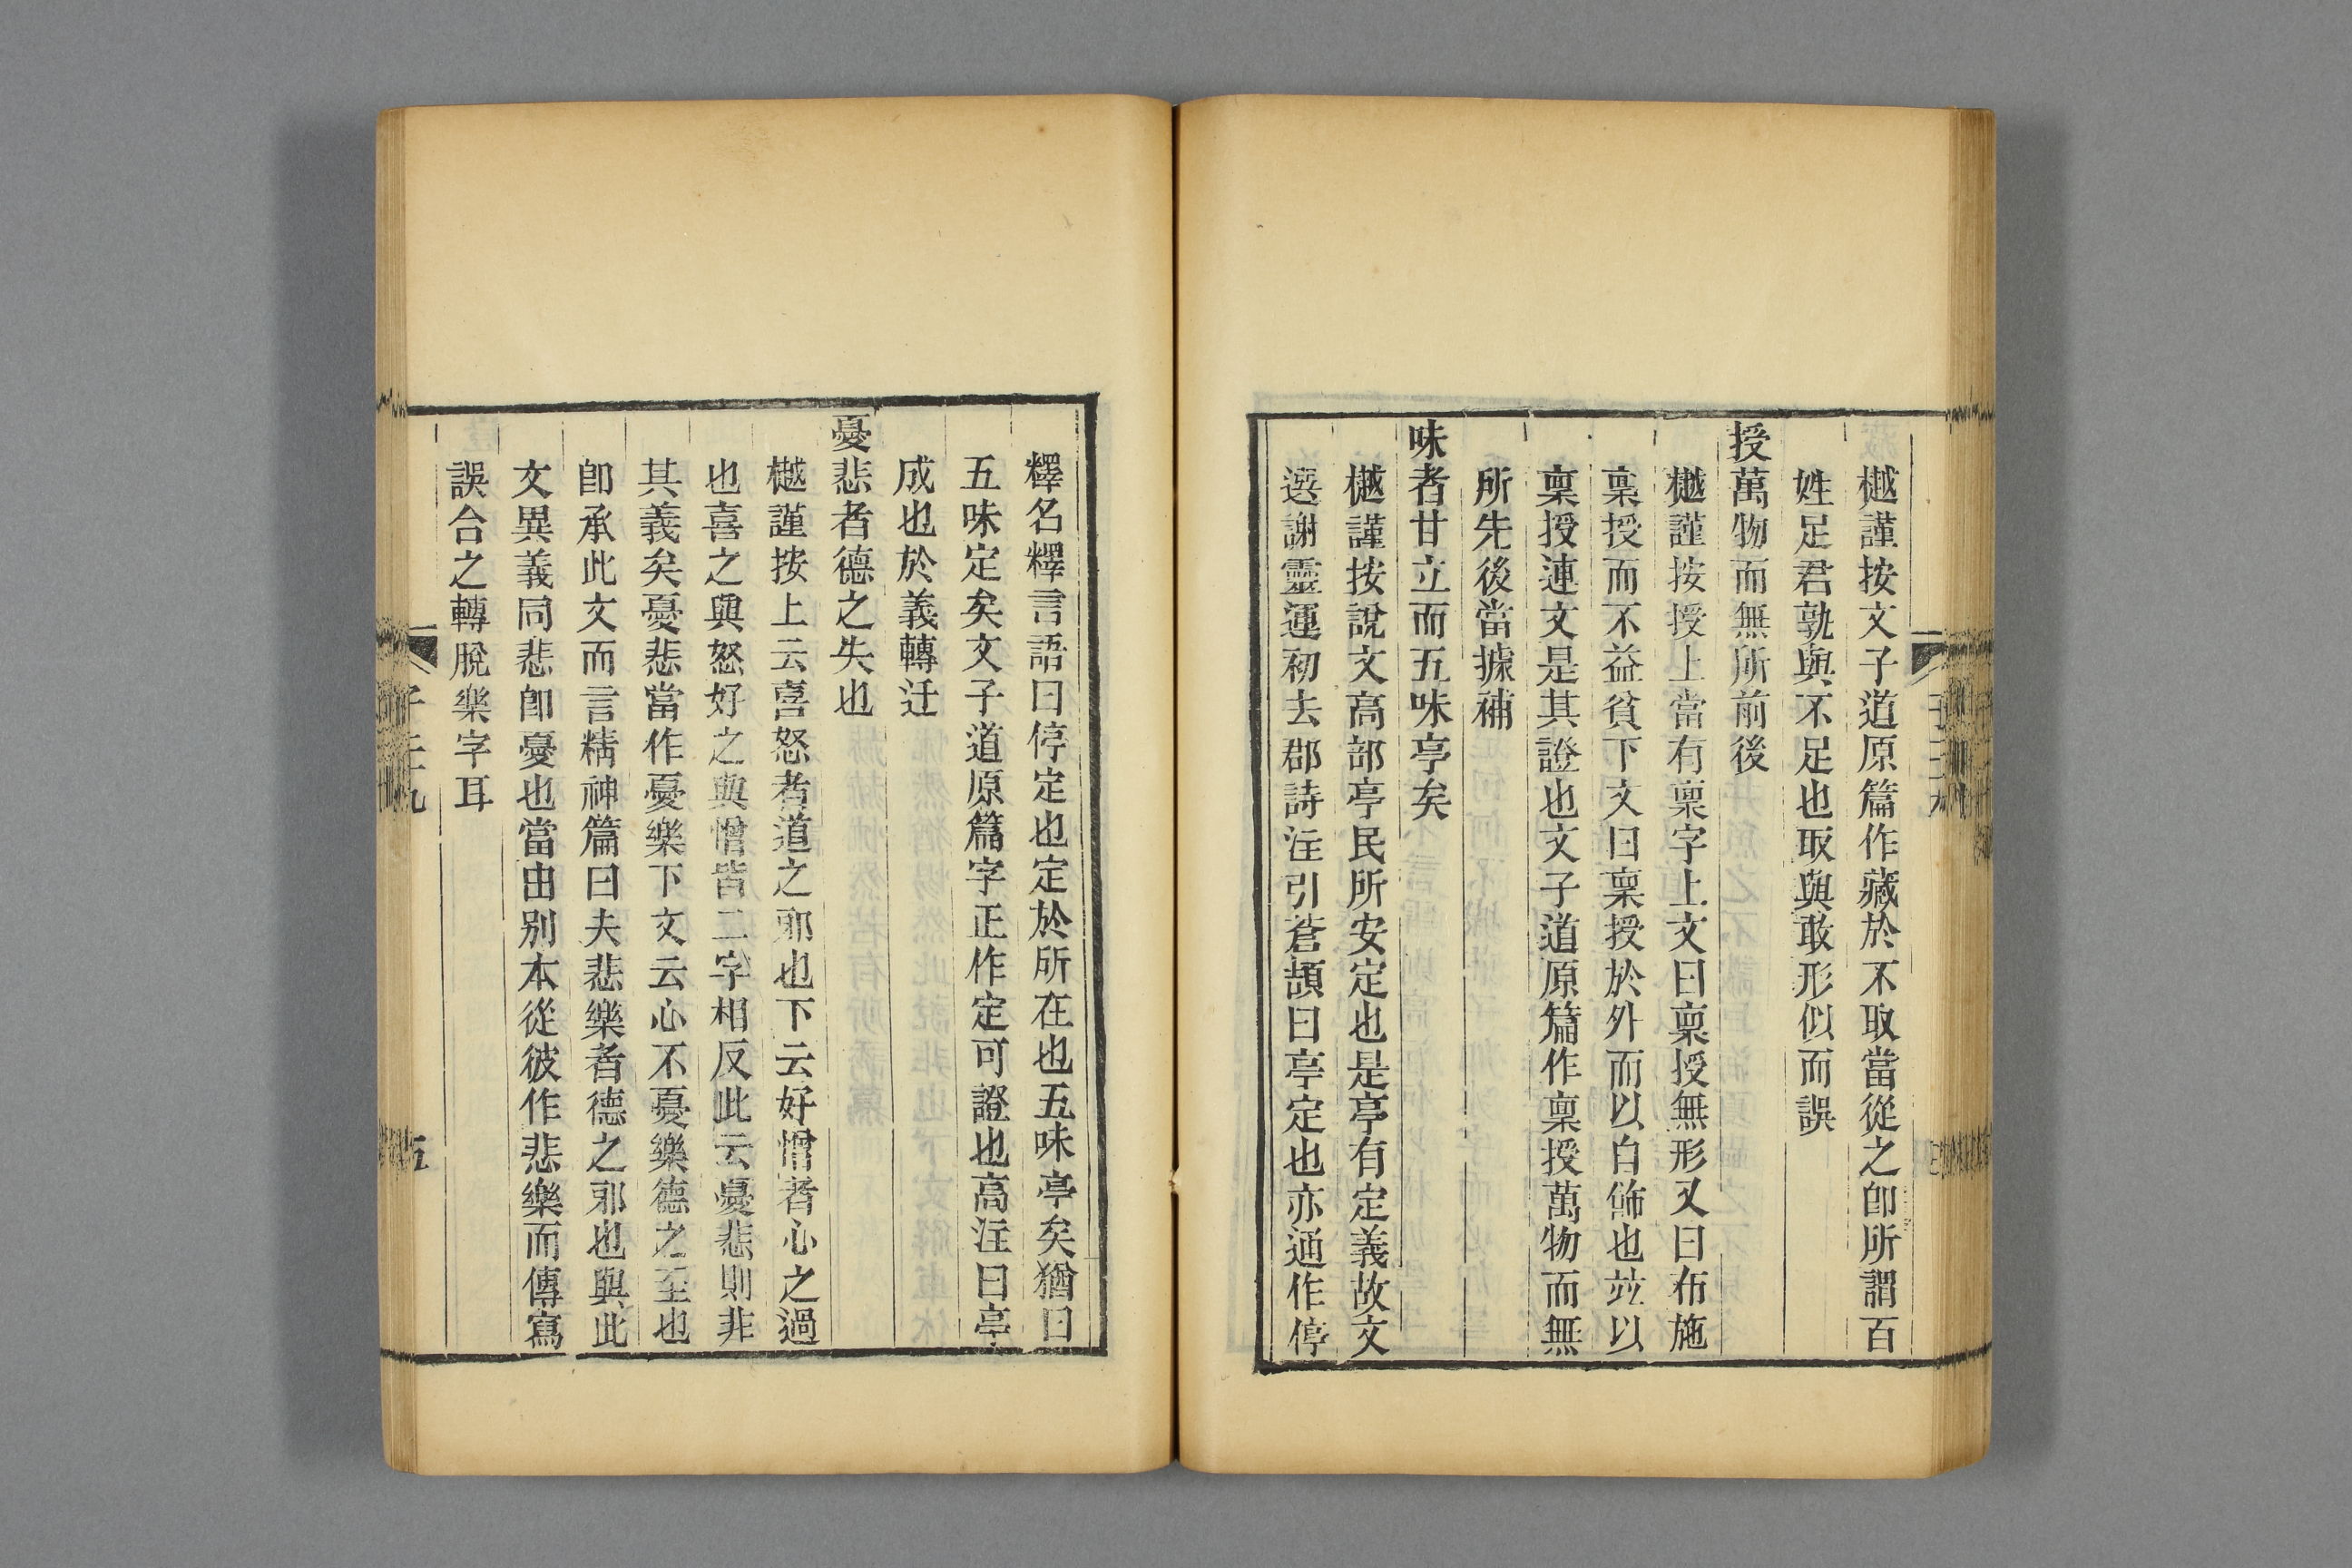 樾謹按文子道原篇作藏於不取當從之卽所謂百
姓足君孰與不足也取與敢形似而誤
授萬物而無所前後
樾謹按授上當有稟字上文曰稟授無形又曰布施
稟授而不益貧下文曰稟授於外而以自飾也竝以
稟授連文是其證也文子道原篇作稟授萬物而無
所先後當據補
味者甘立而五味亭矣
樾謹按說文高部亭民所安定也是亭有定義故文
選謝靈運初去郡詩注引蒼頡曰亭定也亦通作停
釋名釋言語曰停定也定於所在也五味亭矣猶曰
五味定矣文子道原篇字正作定可證也高注曰亭
成也於義轉迂
憂悲者德之失也
樾謹按上云喜怒者道之邪也下云好憎者心之過
也喜之與怒好之與憎皆二字相反此云憂悲則非
其義矣憂悲當作憂樂下文云心不憂樂德之至也
卽承此文而言精神篇曰夫悲樂者德之邪也與此
文異義同悲卽憂也當由別本從彼作悲樂而傳寫
誤合之轉脫樂字耳
五